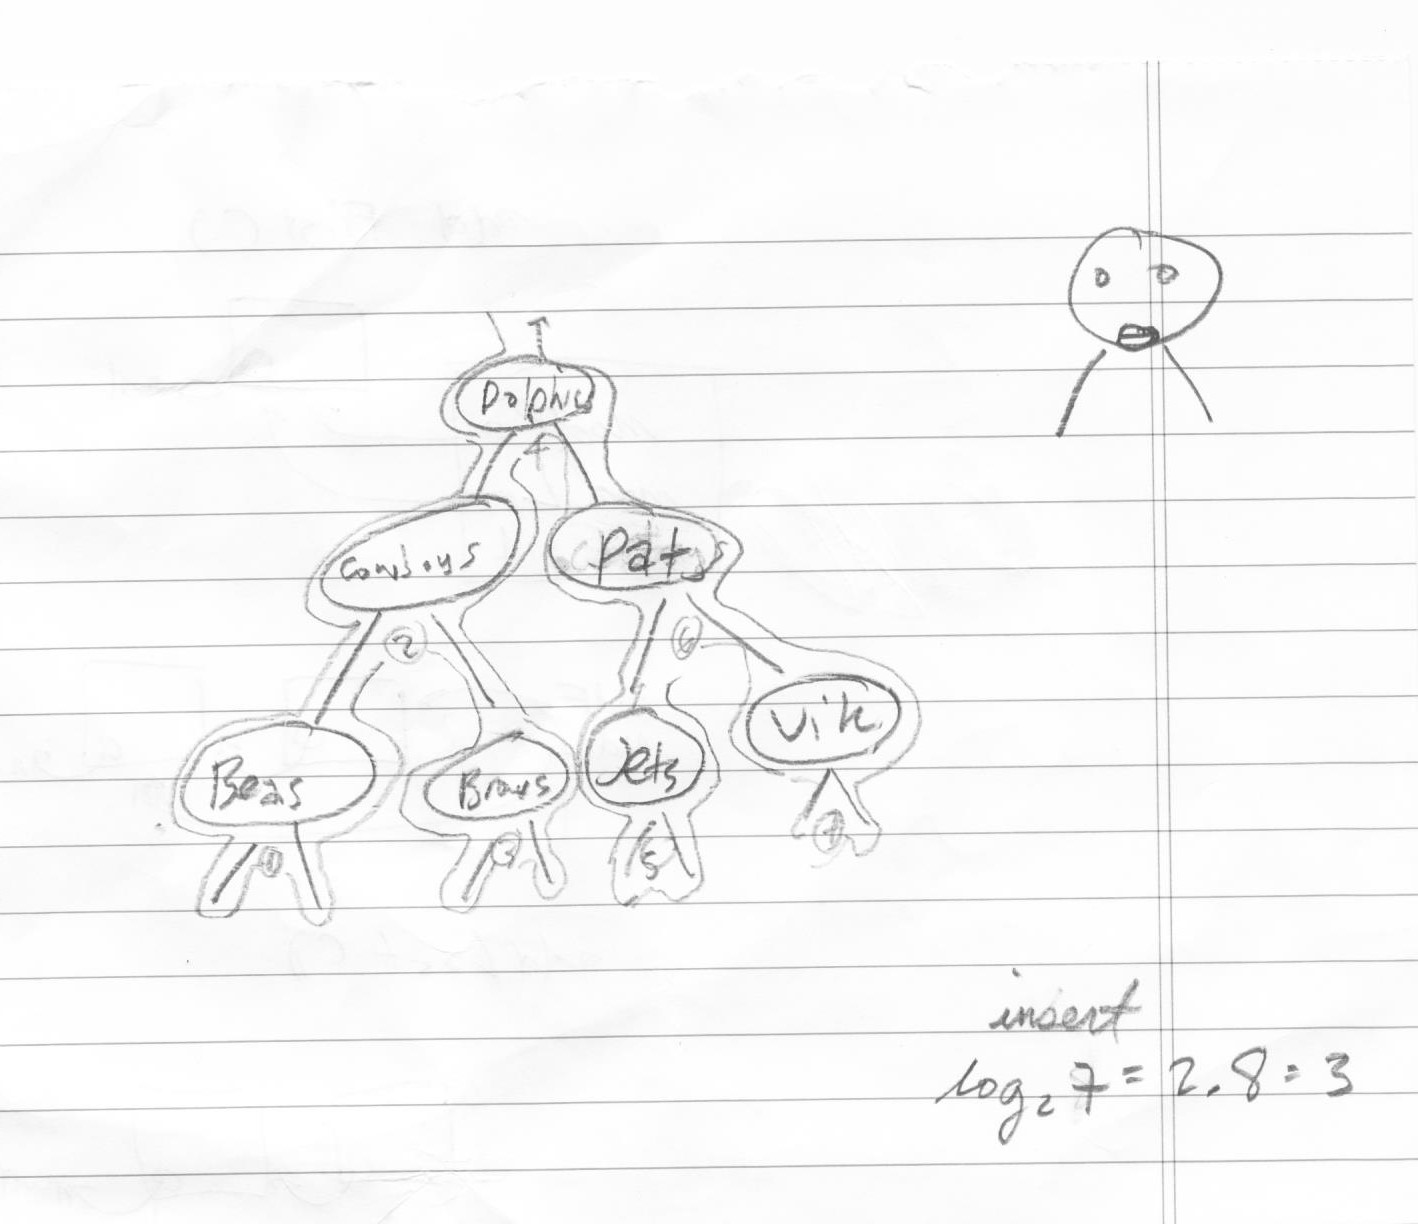 Dolphis
4
Cowboys
Pats
2
6
Vik
Beas
Browns
Jets
1
3
5
7
insert
log₂ 7 = 2.8 = 3